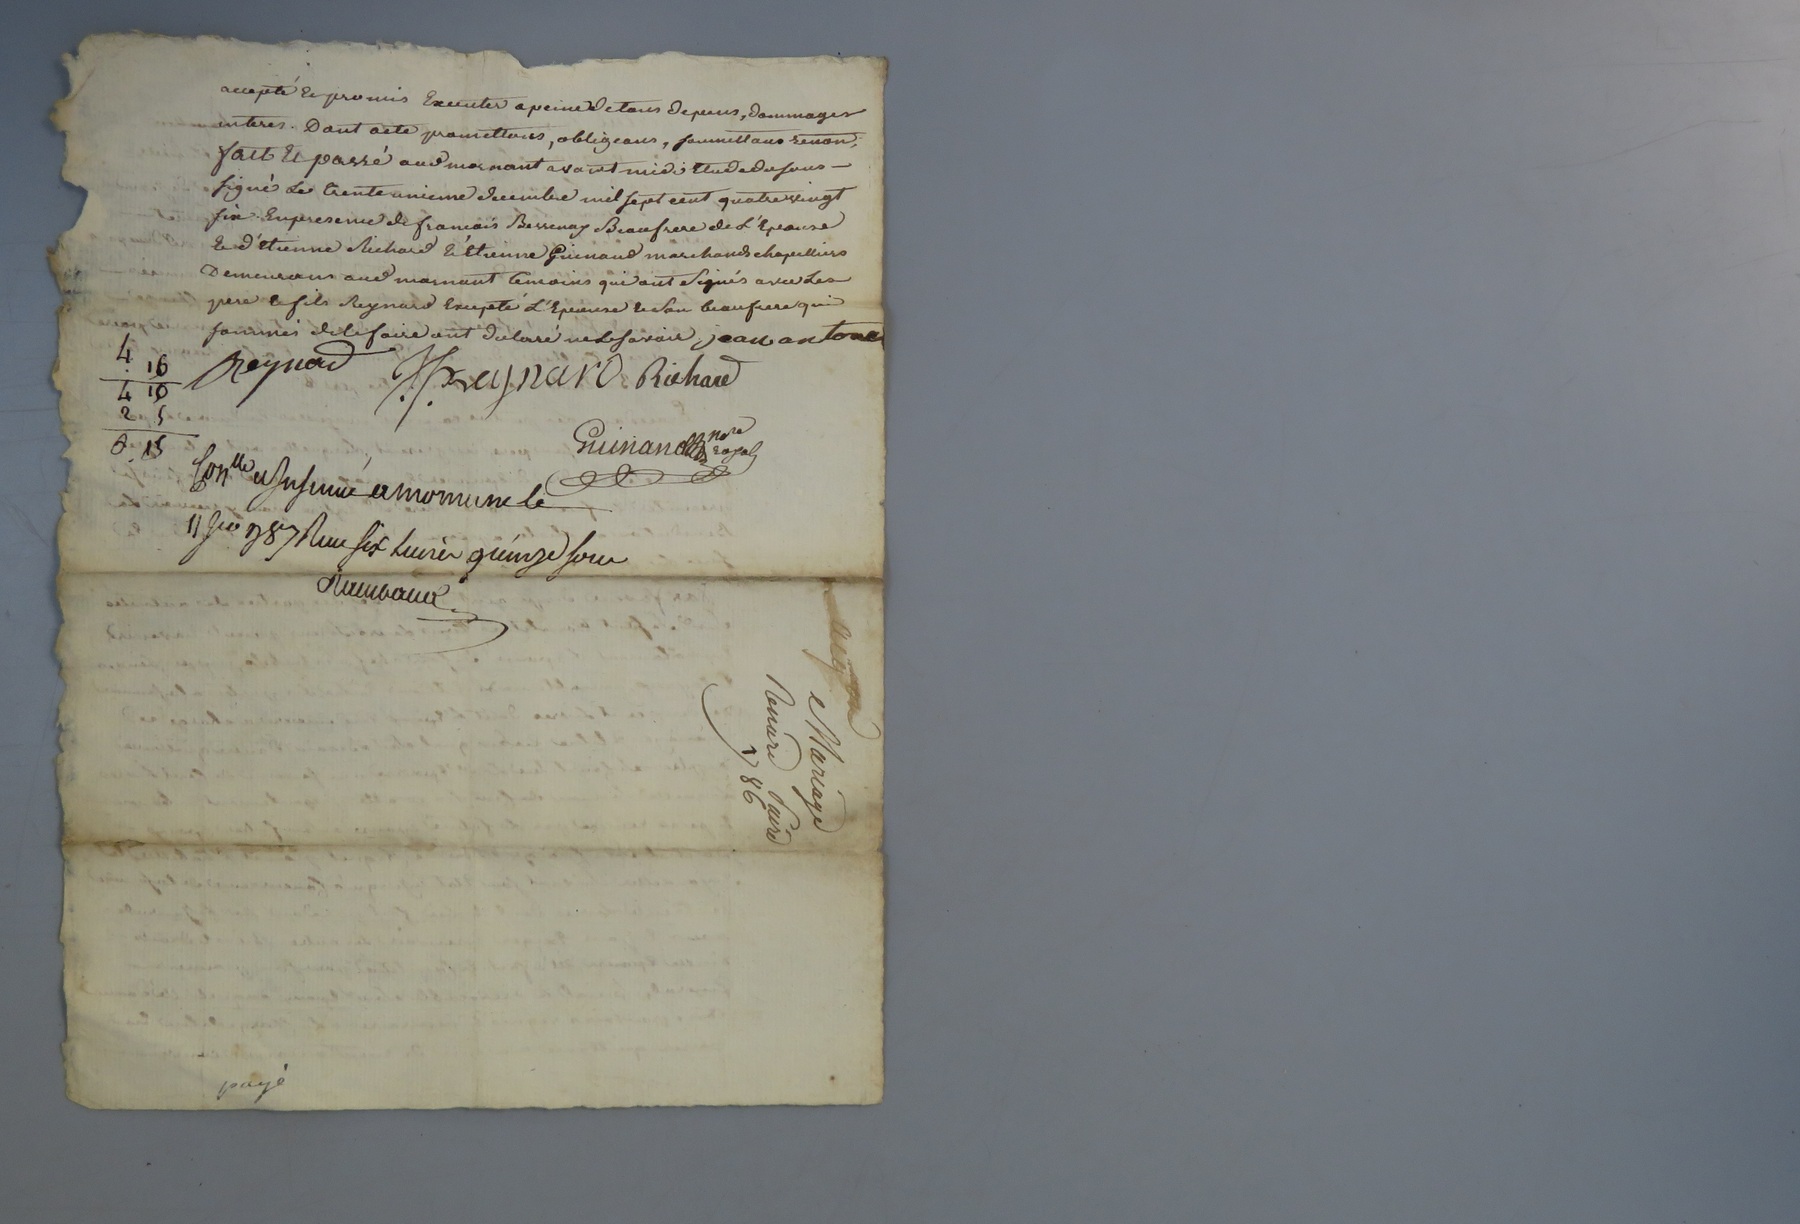 accepté & promis Executer a peine de tous depens, dommages
interes. Dont acte promettans, obligeans, soumettans renon.
fait & passé aud mornant avant midi Etude du sous-
signé Le trente unieme decembre mil sept cent quatre vingt
six En presence de francois Bessenay Beaufrere de L'Epouse
& d'Etienne Richard & Etienne Guinand marchands chapelliers
Demeurans aud mornant temoins qui ont signés avec Les
pere & fils Reynard Excepté L'Epouse & son beaufrere qui
sommés de le faire ont declaré ne le savoir, jean antoine
Reynard Reynard Richard
4
16
4 10
2 5
6. 15
Guinand nore royal
Conlle et Insinué a mornant le
11 Jer 1787 Recu six livres quinze sous
Mariage
1786
payé